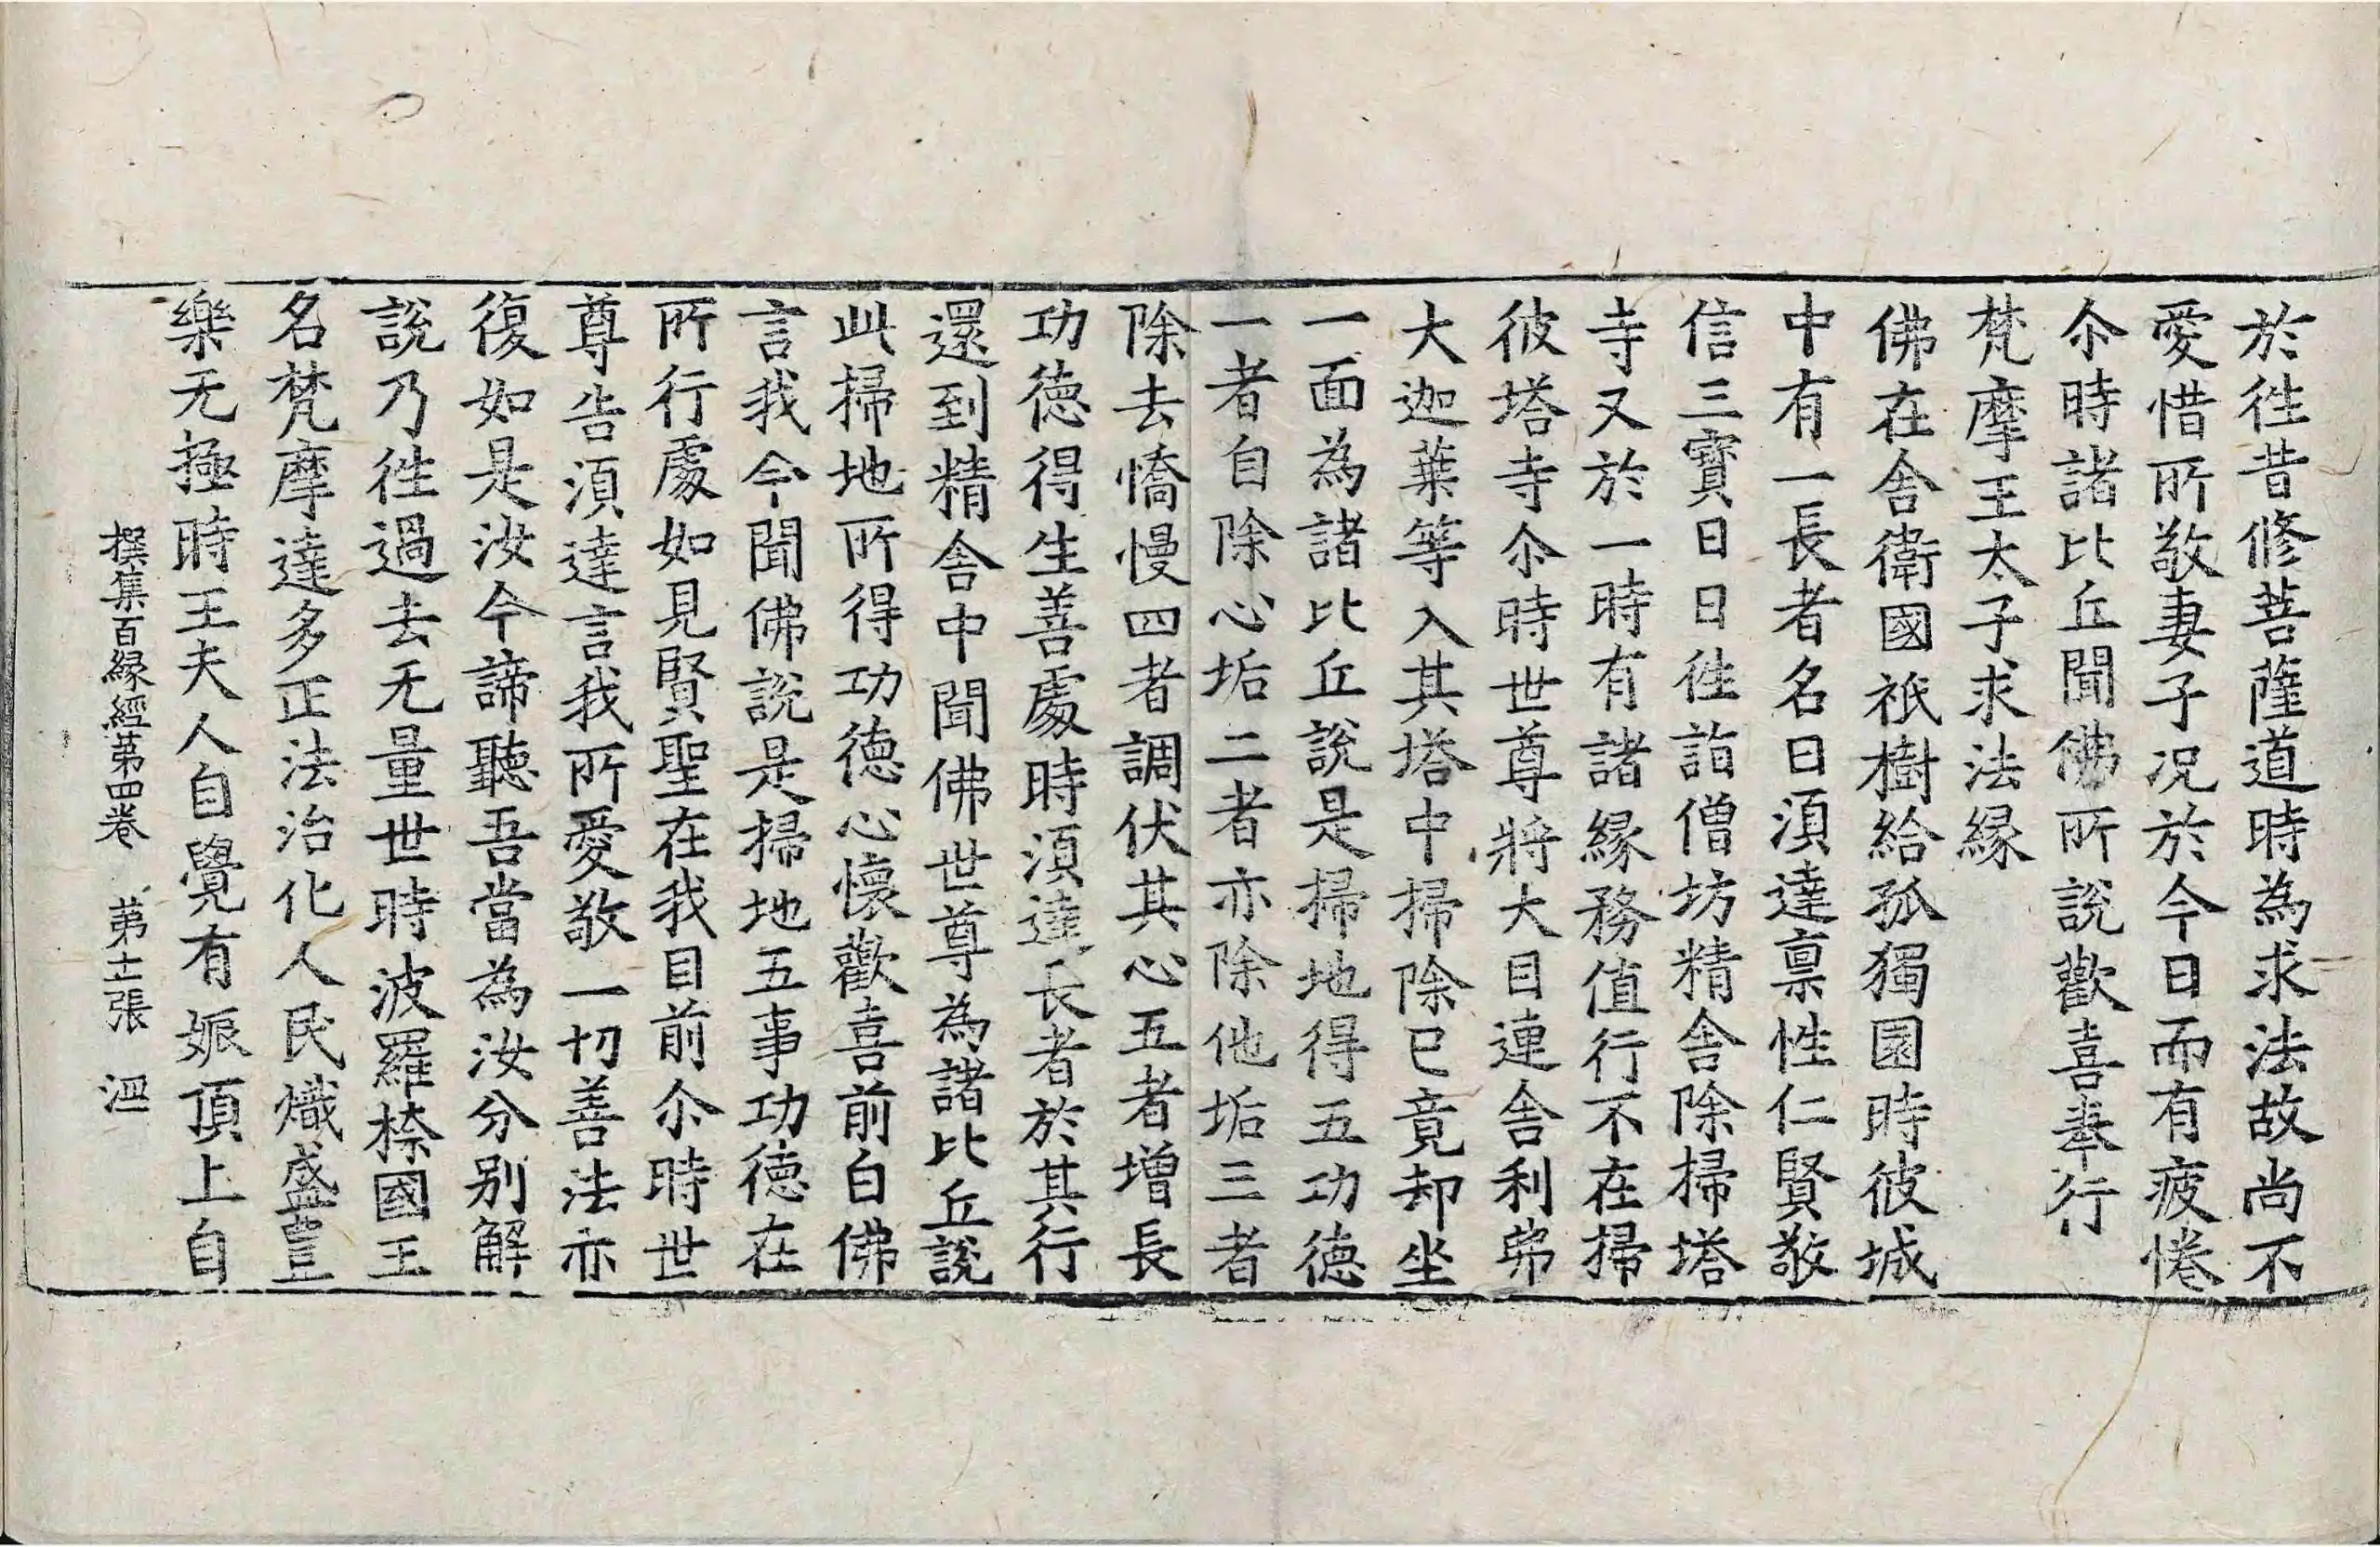 於徃昔修菩薩道時為求法故尚不
愛惜所敬妻子况於今日而有疲惓
尒時諸比丘聞佛所說歡喜奉行
梵摩王太子求法緣
佛在舎衛國祇樹給孤獨園時彼城
中有一長者名曰湏達禀性仁賢敬
信三寳日日徃詣僧坊精舎除掃塔
寺又於一時有諸緣務值行不在掃
彼塔寺尒時世尊將大目連舎利弗
大迦葉等入其塔中掃除已竟却坐
一面為諸比丘說是掃地得五功德
一者自除心垢二者亦除他垢三者
除去憍慢四者調伏其心五者增長
功德得生善處時湏達長者於其行
還到精舎中聞佛世尊為諸比丘說
此掃地所得功德心懷歡喜前白佛
言我今聞佛說是掃地五事功德在
所行處如見賢聖在我目前尒時世
尊告湏達言我所愛敬一切善法亦
復如是汝今諦聽吾當為汝分别解
說乃徃過去无量世時波羅㮈國王
名梵摩達多正法治化人民熾盛豈
樂无極時王夫人自覺有娠頂上自
撰集百緣經第四卷　第十二張　洫